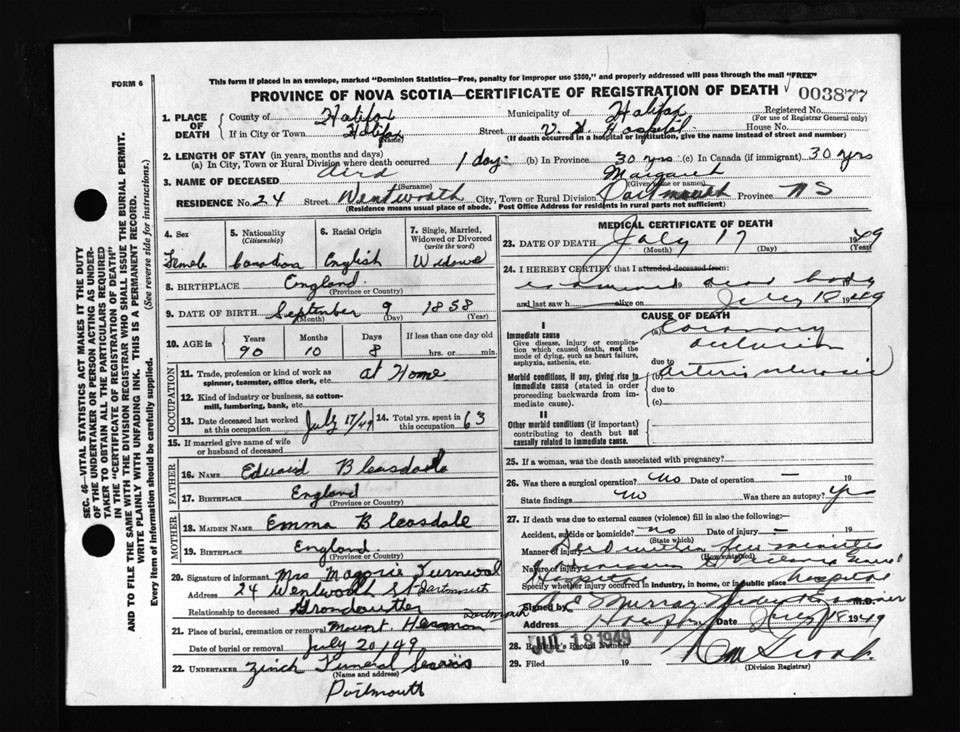 This form if placed in an envelope, marked "Dominion Statistics—Free, penalty for improper use $300," and properly addressed will pass through the mail "FREE"
FORM 6
PROVINCE OF NOVA SCOTIA—CERTIFICATE OF REGISTRATION OF DEATH 003877
1. PLACE OF DEATH County of Halifax Municipality of Halifax Registered No. (For use of Registrar General only)
If in City or Town Halifax (Name) Street V. G. Hospital House No.
(If death occurred in a hospital or institution, give the name instead of street and number)
2. LENGTH OF STAY (in years, months and days)
(a) In City, Town or Rural Division where death occurred 1 day. (b) In Province 30 yrs (c) In Canada (if immigrant) 30 yrs
3. NAME OF DECEASED Aird (Surname) Margaret (Given name or names)
RESIDENCE No. 24 Street Wentworth City, Town or Rural Division Dartmouth Province N S
(Residence means usual place of abode. Post Office Address for residents in rural parts not sufficient)
4. Sex 5. Nationality (Citizenship) 6. Racial Origin 7. Single, Married, Widowed or Divorced (write the word)
Female Canadian English Widowed
8. BIRTHPLACE England (Province or Country)
9. DATE OF BIRTH September (Month) 9 (Day) 1858 (Year)
10. AGE in Years Months Days If less than one day old
90 10 8 hrs. or min.
OCCUPATION
11. Trade, profession or kind of work as spinner, teamster, office clerk, etc. at Home
12. Kind of industry or business, as cotton-mill, lumbering, bank, etc.
13. Date deceased last worked at this occupation July 17/49 14. Total yrs. spent in this occupation 63
15. If married give name of wife or husband of deceased
FATHER
16. NAME Edward Bleasdale
17. BIRTHPLACE England (Province or Country)
MOTHER
18. MAIDEN NAME Emma Bleasdale
19. BIRTHPLACE England (Province or Country)
20. Signature of informant Mrs
Address 24 Wentworth St Dartmouth
Relationship to deceased
21. Place of burial, cremation or removal Mount Hermon Dartmouth
Date of burial or removal July 20/49
22. UNDERTAKER Zinck Funeral
(Name and address)
MEDICAL CERTIFICATE OF DEATH
23. DATE OF DEATH July (Month) 17 (Day) 1949 (Year)
24. I HEREBY CERTIFY that I attended deceased from:
examined 19 dead body
and last saw h alive on July 18 1949
CAUSE OF DEATH
I
Immediate cause (a) Coronary occlusion
Give disease, injury or complication which caused death, not the mode of dying, such as heart failure, asphyxia, asthenia, etc.
due to
Morbid conditions, if any, giving rise to immediate cause (stated in order proceeding backwards from immediate cause). (b) arteriosclerosis
due to
(c)
II
Other morbid conditions (if important) contributing to death but not causally related to immediate cause.
25. If a woman, was the death associated with pregnancy?
26. Was there a surgical operation? No Date of operation — 19
State findings No Was there an autopsy? Yes
27. If death was due to external causes (violence) fill in also the following:
Accident, suicide or homicide? no (State which) Date of injury — 19
Manner of injury within few minutes (How sustained)
Nature of injury
Specify whether injury occurred in industry, in home, or in public place
Signed by Murray M.D.
Address Halifax Date July 18 1949
28. Registrar's Record Number
JUL 18 1949
29. Filed 19
(Division Registrar)
SEC. 46—VITAL STATISTICS ACT MAKES IT THE DUTY
OF THE UNDERTAKER OR PERSON ACTING AS UNDER-
TAKER TO OBTAIN ALL THE PARTICULARS REQUIRED
IN THE "CERTIFICATE OF REGISTRATION OF DEATH"
AND TO FILE THE SAME WITH THE DIVISION REGISTRAR WHO SHALL ISSUE THE BURIAL PERMIT.
WRITE PLAINLY WITH UNFADING INK. THIS IS A PERMANENT RECORD.
Every item of Information should be carefully supplied. (See reverse side for instructions.)